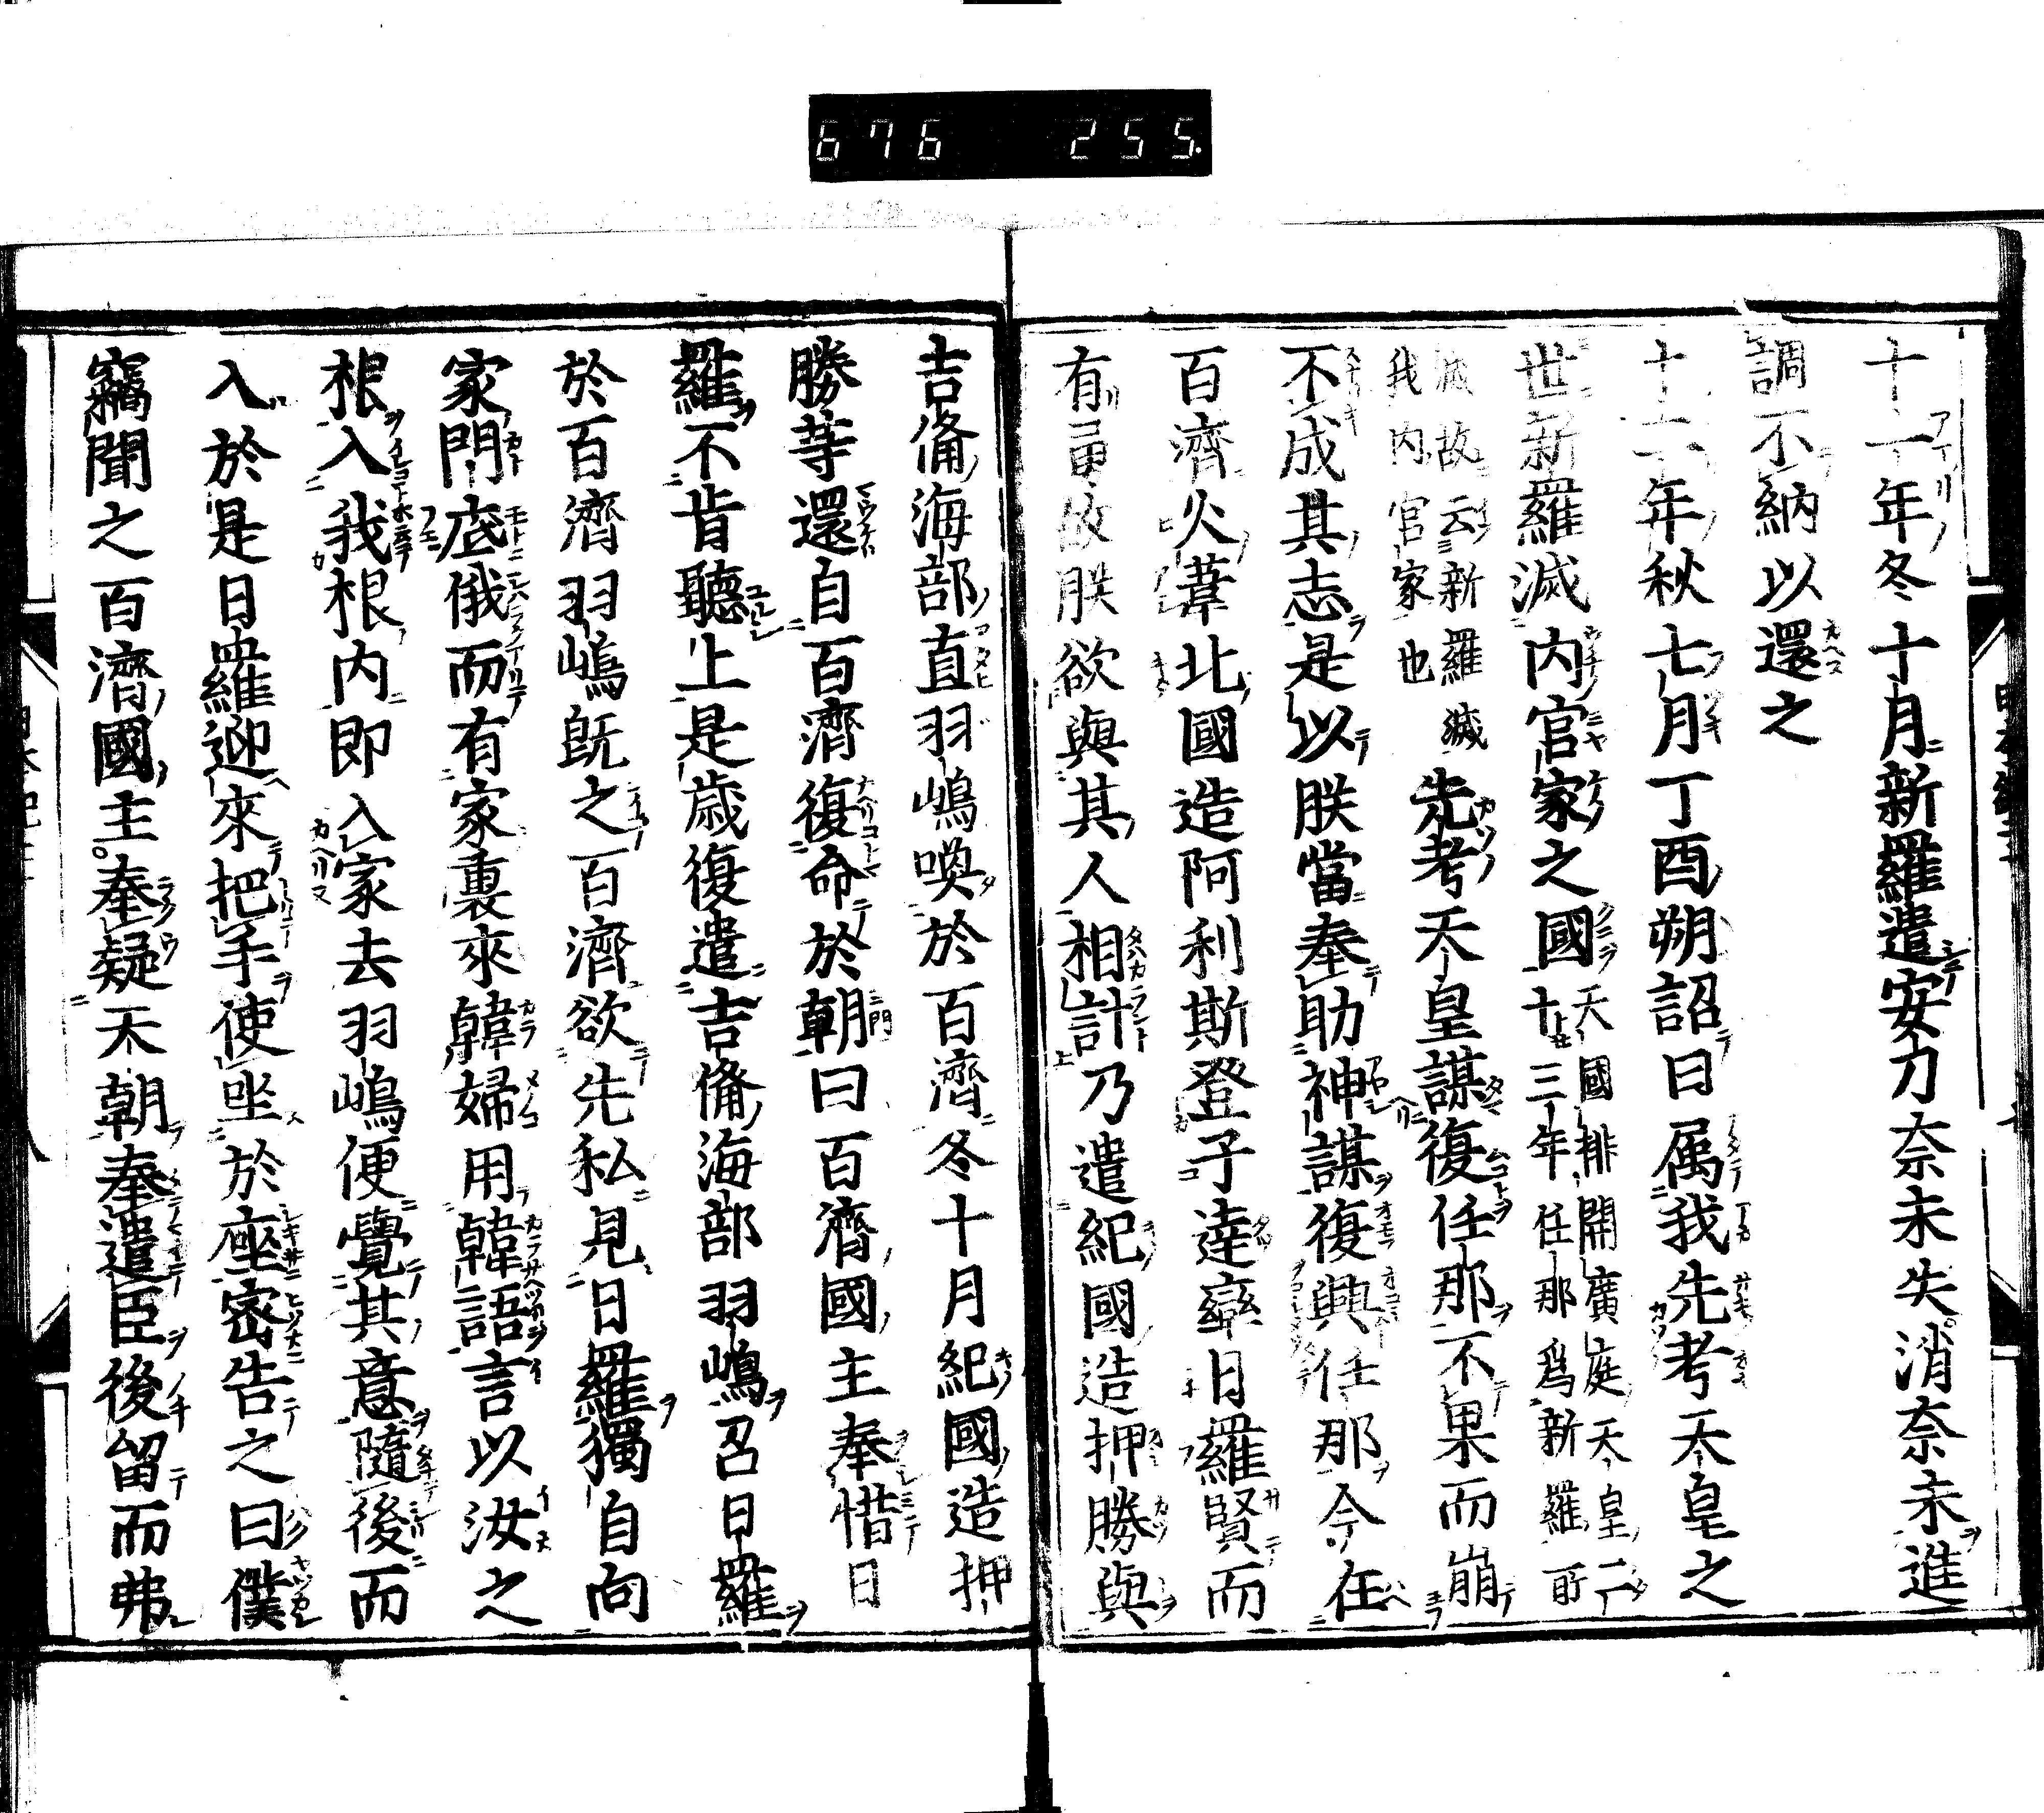 676 255.
十一年冬十月新羅遣安刀奈末失消奈末進
調不納以還之
十二年秋七月丁酉朔詔曰属我先考天皇之
世新羅滅内官家之國天國排開廣庭天皇二
十三年任那爲新羅所
滅故云新羅滅
我内官家也先考天皇謀復任那不果而崩
不成其志是以朕當奉助神謀復興任那今在
百濟火葦北國造阿利斯登子達率日羅賢而
有勇故朕欲與其人相計乃遣紀國造押勝與
吉備海部直羽嶋喚於百濟冬十月紀國造押
勝等還自百濟復命於朝曰百濟國主奉惜日
羅不肯聽上是歳復遣吉備海部羽嶋召日羅
於百濟羽嶋既之百濟欲先私見日羅獨自向
家門底俄而有家裏來韓婦用韓語言以汝之
根入我根内即入家去羽嶋便覺其意隨後而
入於是日羅迎來把手使坐於座密告之曰僕
竊聞之百濟國主奉疑天朝奉遣臣後留而弗